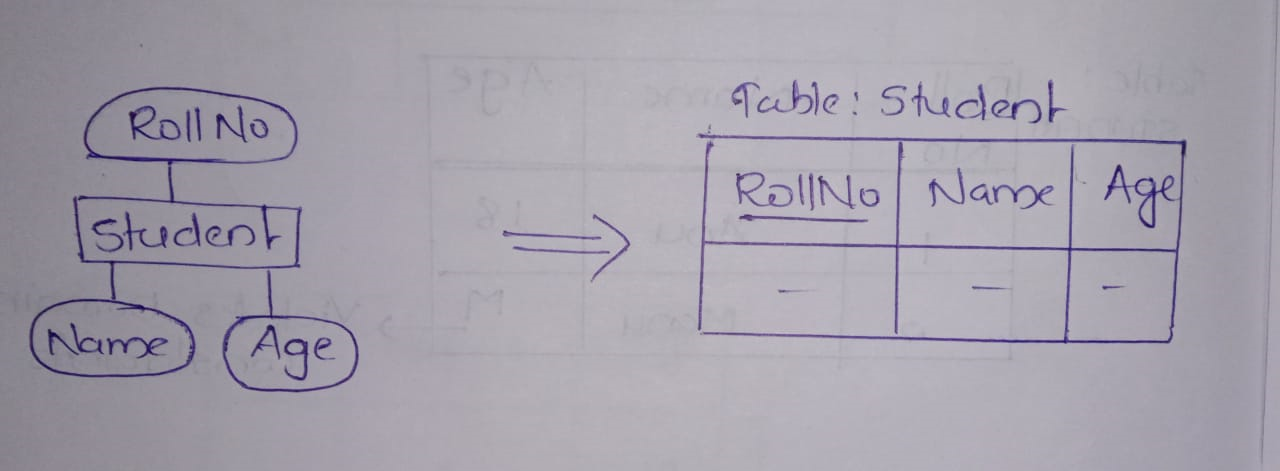 RollNo
Student
Name
Age
Table: Student
RollNo Name Age
— — —